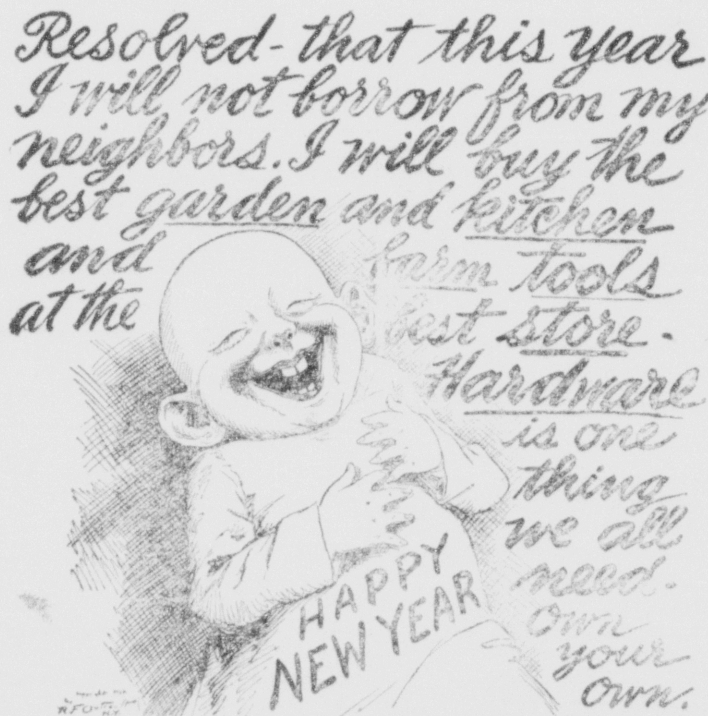 Resolved - that this year
I will not borrow from my
neighbors. I will buy the
best garden and kitchen
and farm tools
at the best store.
Hardware
is one
thing
we all
need.
Own
your
own.
HAPPY
NEW YEAR